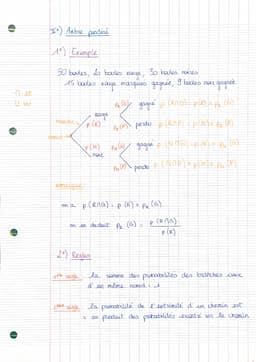 II°) Arbre pondéré
1°) Exemple
50 boules, 20 boules rouge, 30 boules noires
15 boules rouge marquées gagné, 9 boules noir gagné
rouge
p(R)
gagné p(R∩G) = p(R) × p_R(G)
perdu p(R∩P) = p(R) × p_R(P)
p(N)
noir
gagné p(N∩G) = p(N) × p_N(G)
perdu p(N∩P) = p(N) × p_N(P)
on a p(R∩G) = p(R) × p_R(G)
on en déduit p_R(G) = p(R∩G) / p(R)
2°) Règles
la somme des probabilités des branches issue
d'un même nœud = 1
la probabilité de l'extrémité d'un chemin est
= au produit des probabilités inscrits sur le chemin